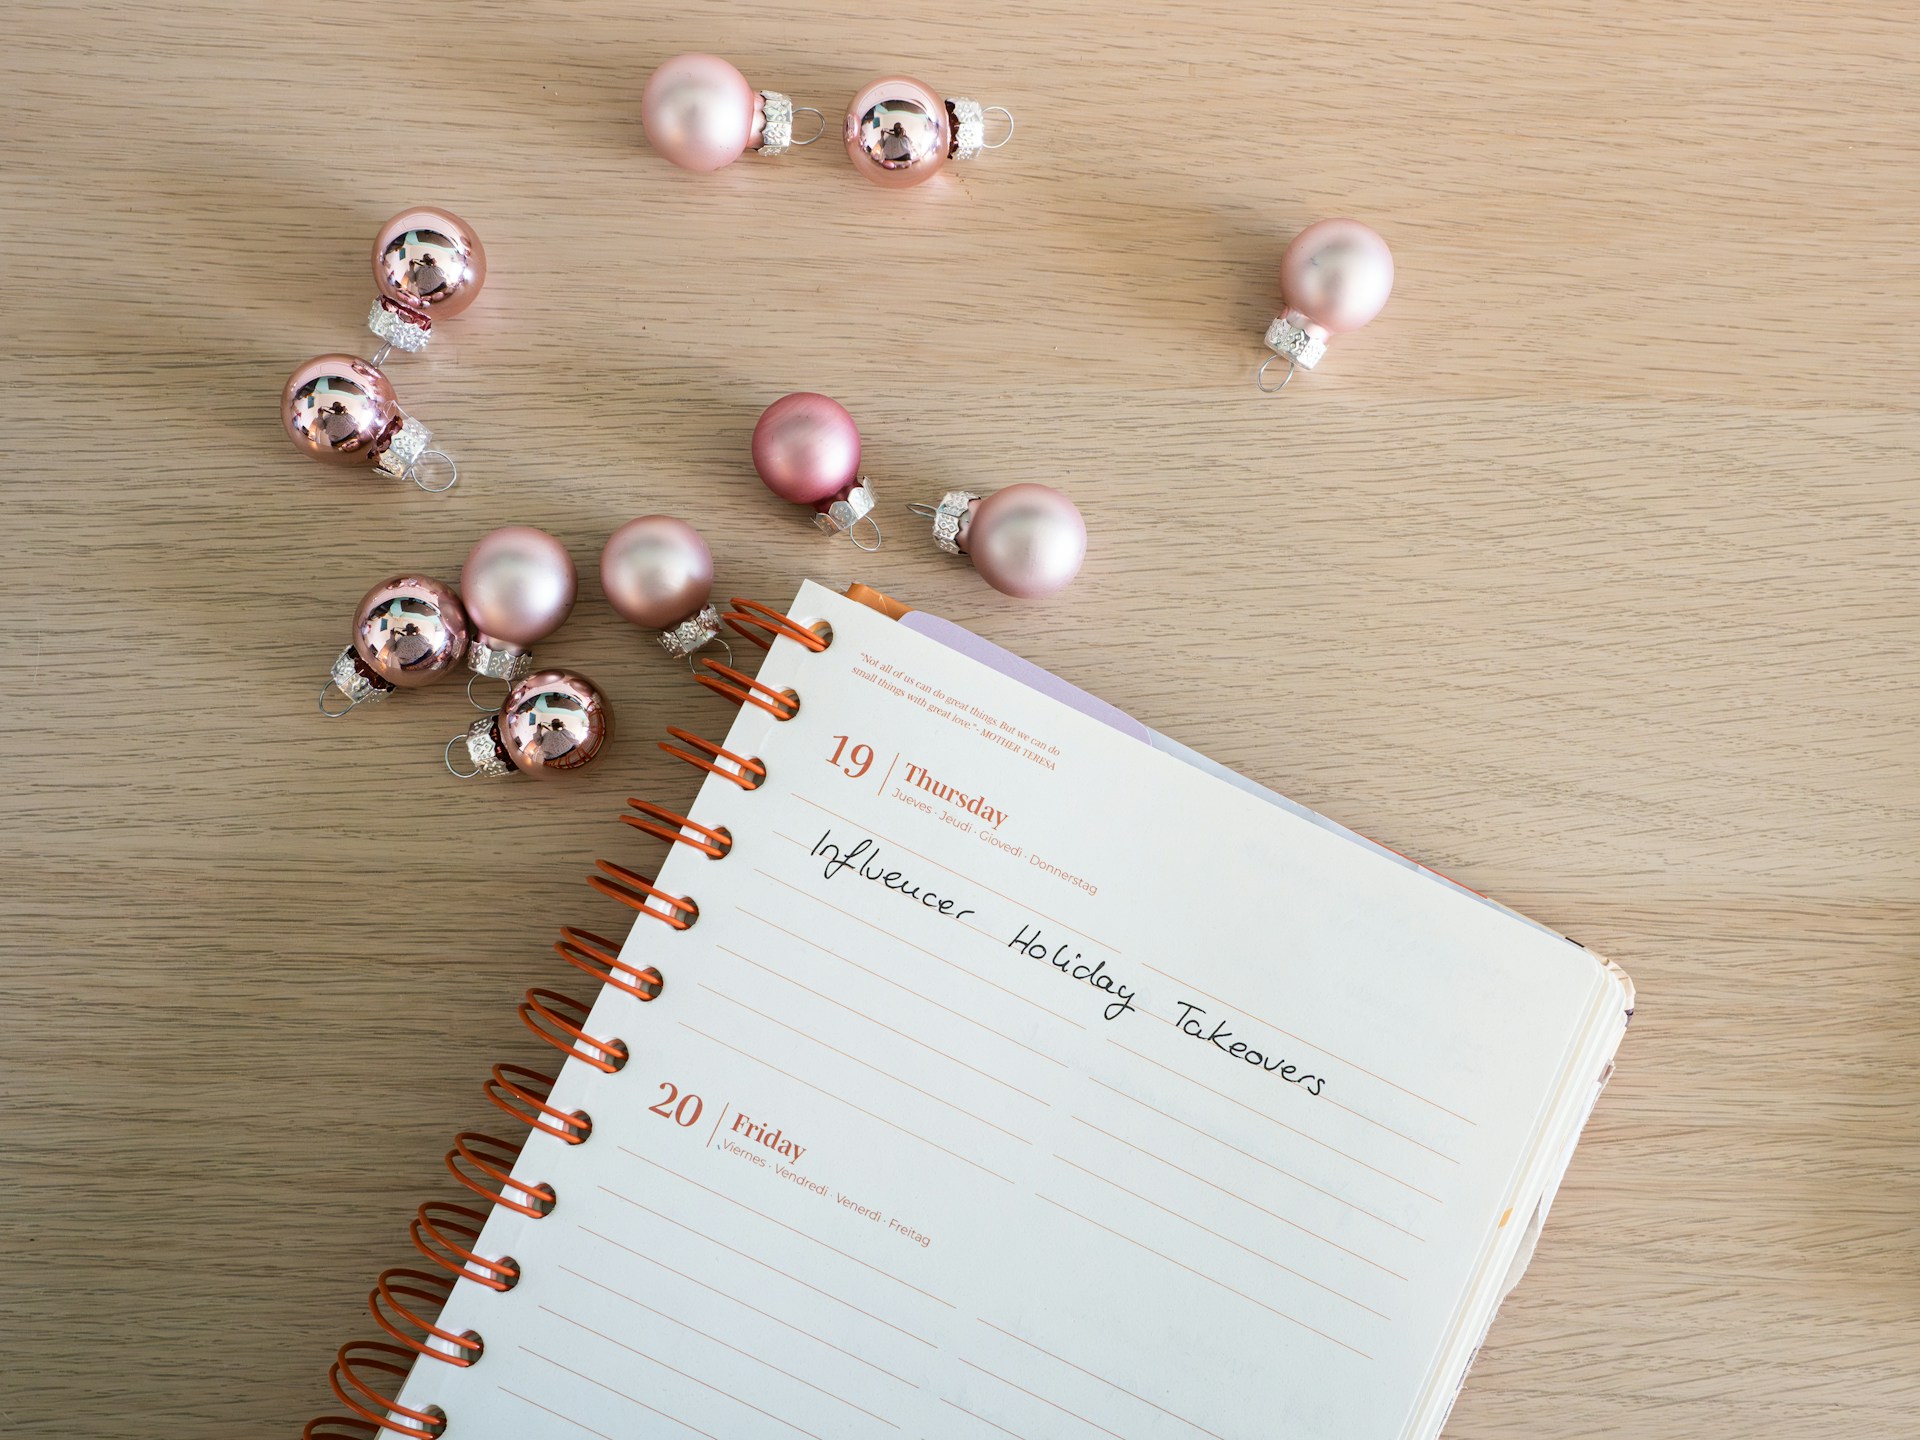 "Not all of us can do great things. But we can do
small things with great love." - MOTHER TERESA
19 Thursday
Jueves · Jeudi · Giovedì · Donnerstag
Influencer Holiday Takeovers
20 Friday
Viernes · Vendredi · Venerdì · Freitag